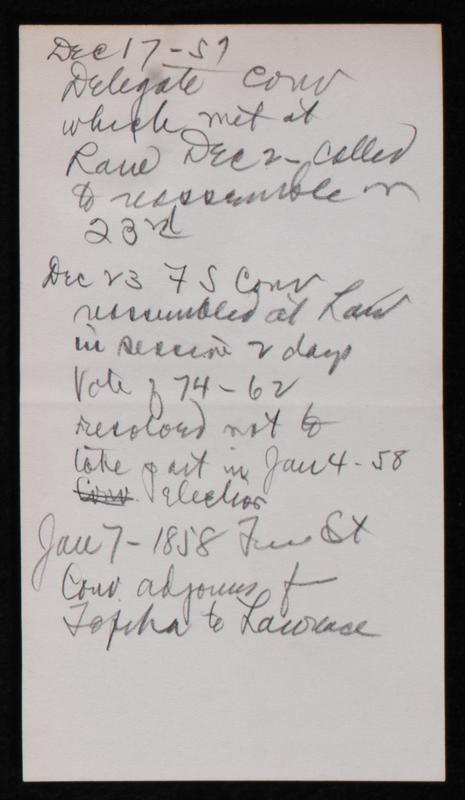 Dec 17-57
Delegate Conv
which met at
Law Dec 2 - called
to reassemble on
23rd
Dec 23 F S Conv
reassembled at Law
in session 2 days
Vote of 74-62
resolved not to
take part in Jan 4-58
Conv Election
Jan 7-1858 Free St
Conv. adjourns f
Topeka to Lawrence